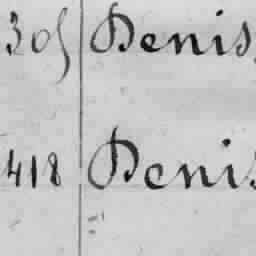 305 Denis,
418 Denis